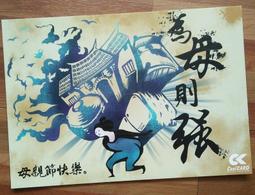 為母則强
母親節快樂。
CK
CooCARD